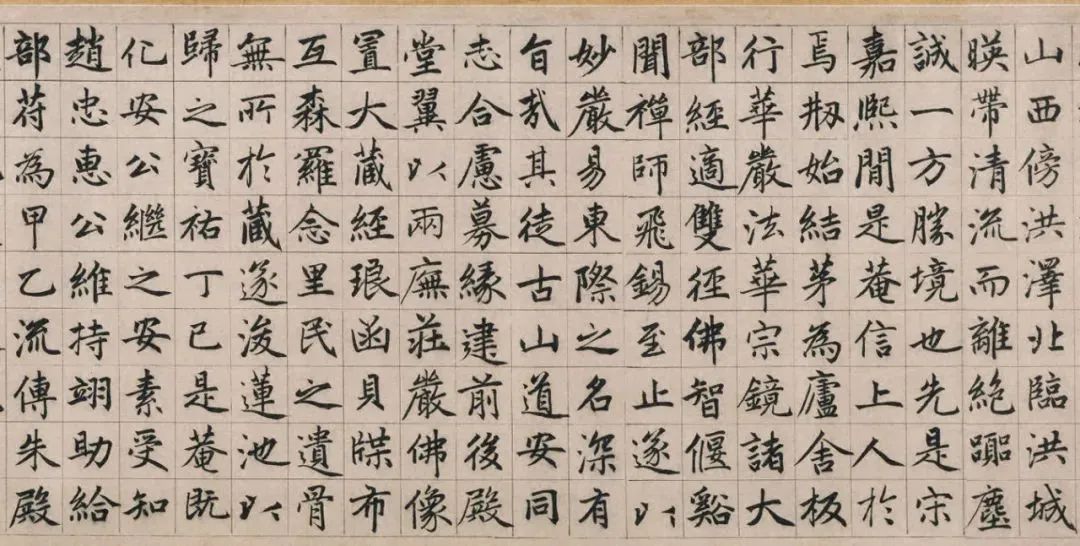 山西傍洪澤北臨洪城
暎帶清流而離絶踂塵
誠一方勝境也先是宋
嘉熙間是菴信上人於
焉刱始結茅為廬舍板
行華嚴法華宗鏡諸大
部經適雙徑佛智偃谿
聞禪師飛錫至止遂以
妙嚴易東際之名深有
旨哉其徒古山道安同
志合慮募緣建前後殿
堂翼以兩廡莊嚴佛像
置大藏經琅函貝牒布
互森羅念里民之遺骨
無所於藏遂浚蓮池以
歸之寶祐丁巳是菴既
化安公繼之安素受知
趙忠惠公維持翊助給
部苻為甲乙流傳朱殿